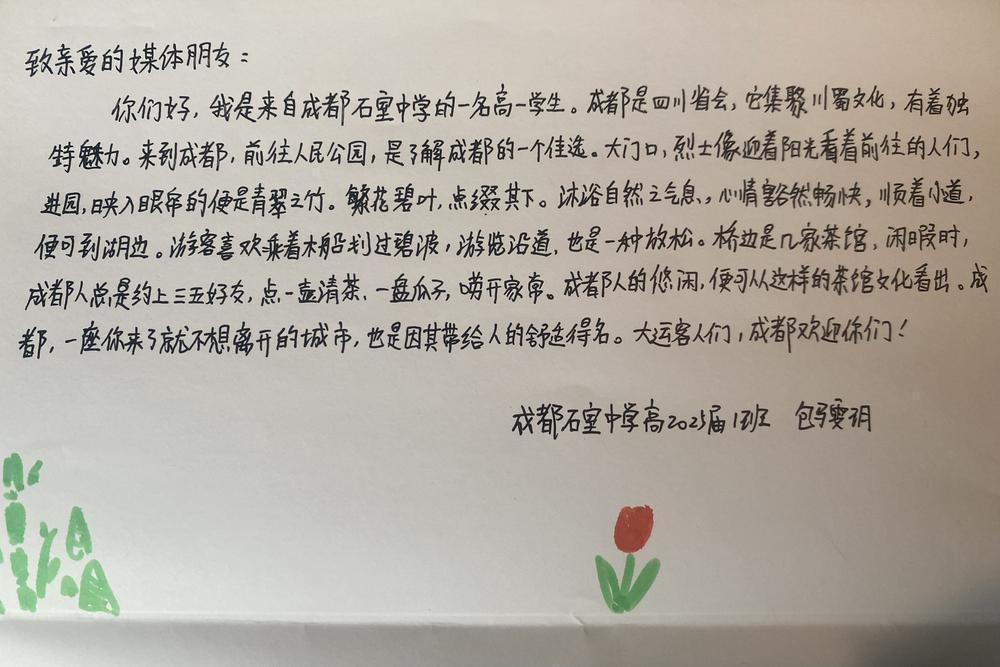 致亲爱的媒体朋友：
你们好，我是来自成都石室中学的一名高一学生。成都是四川省会，它集聚川蜀文化，有着独
特魅力。来到成都，前往人民公园，是了解成都的一个佳选。大门口，烈士像迎着阳光看着前往的人们，
进园，映入眼帘的便是青翠之竹。繁花碧叶，点缀其下。沐浴自然之气息，心情豁然畅快，顺着小道，
便可到湖边。游客喜欢乘着木船划过碧波，游览沿道，也是一种放松。桥边是几家茶馆，闲暇时，
成都人总是约上三五好友，点一壶清茶、一盘瓜子，唠开家常。成都人的悠闲，便可从这样的茶馆文化看出。成
都，一座你来了就不想离开的城市，也是因其带给人的舒适得名。大运客人们，成都欢迎你们！
成都石室中学高2025届1班 包雯玥